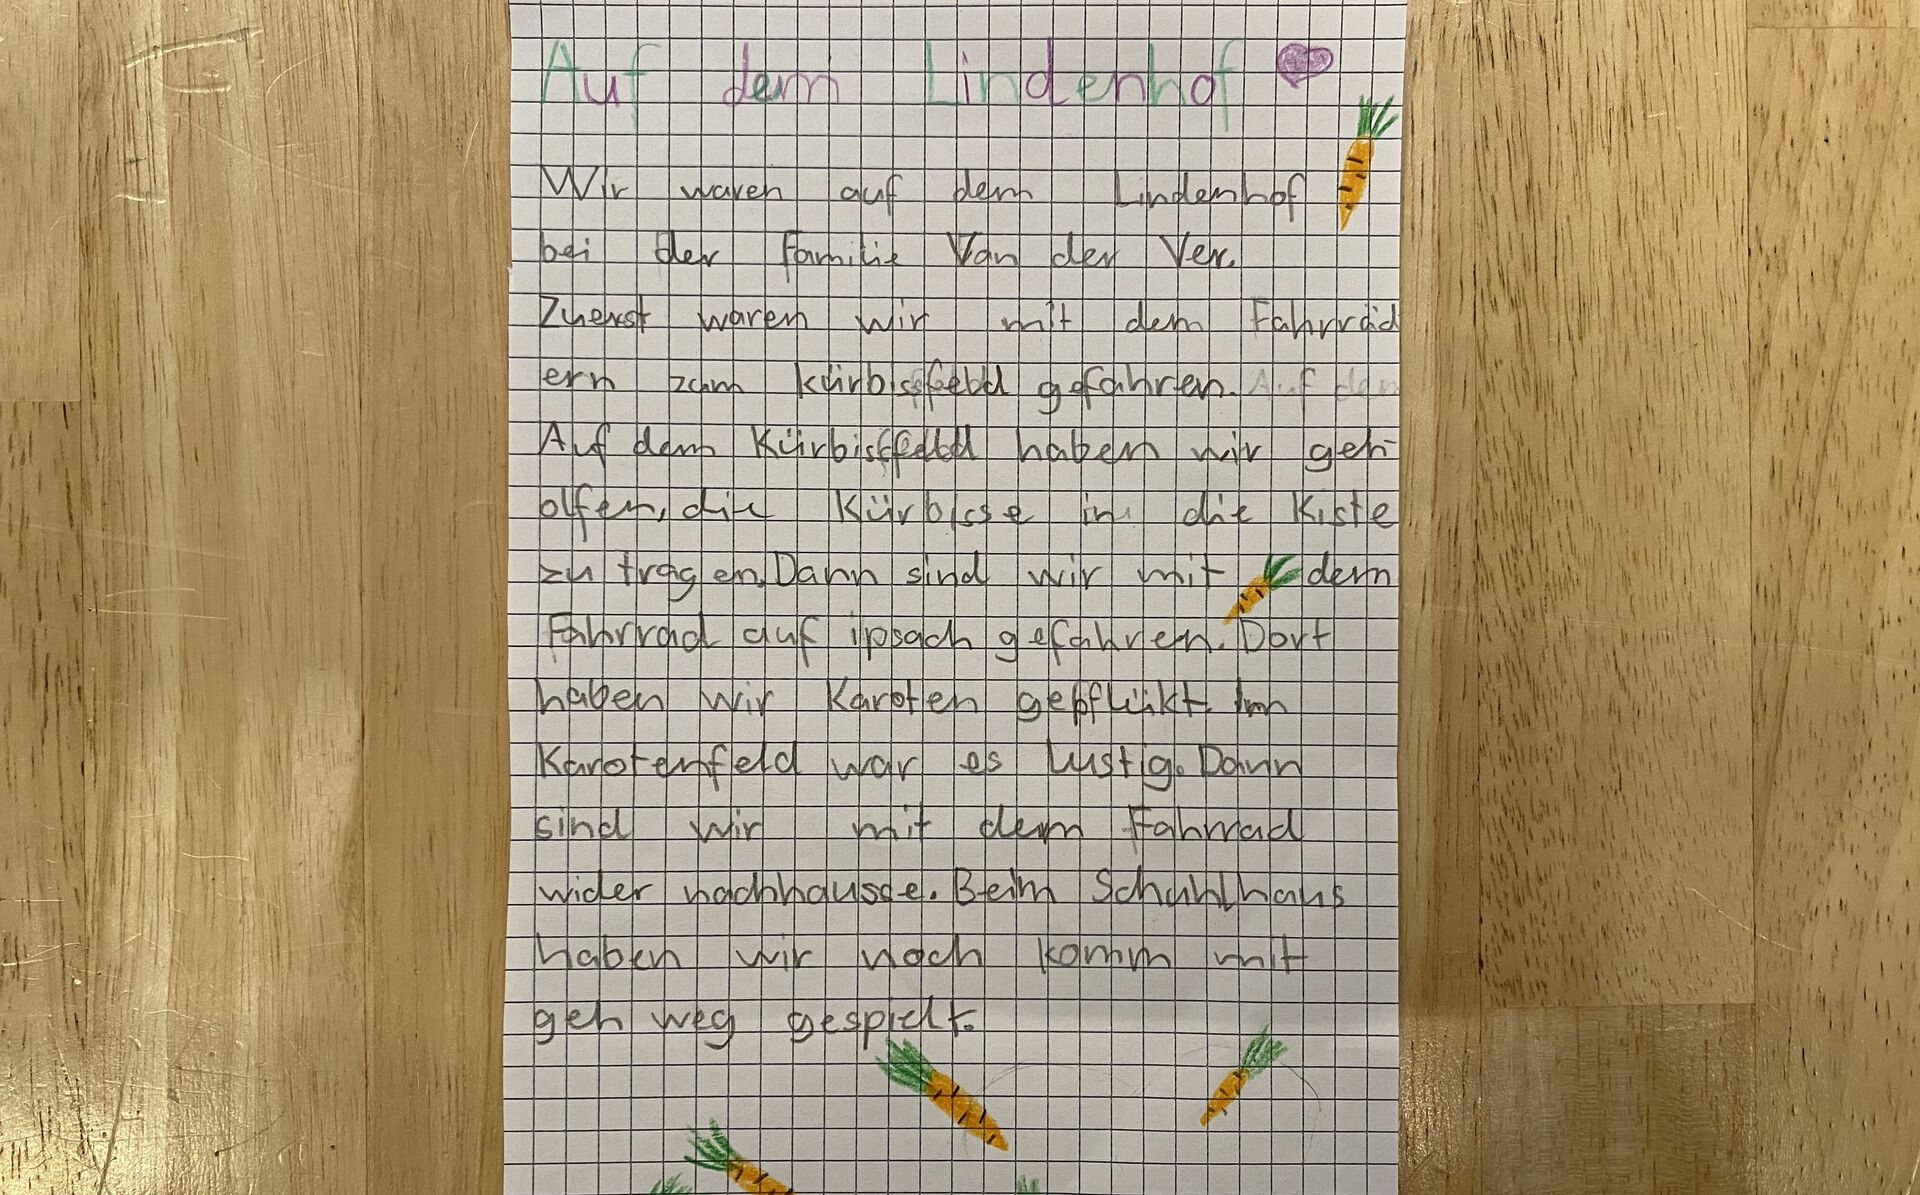 Auf dem Lindenhof
Wir waren auf dem Lindenhof
bei der Familie Van der Ver.
Zuerst waren wir mit dem Fahrräd
ern zum kürbissfeld gefahren. Auf dem
Auf dem Kürbissfeld haben wir geh
olfen, die Kürbisse in die Kiste
zu tragen. Dann sind wir mit dem
Fahrrad auf ipsach gefahren. Dort
haben wir Karoten gepflükt. Im
Karotenfeld war es lustig. Dann
sind wir mit dem Fahrrad
wider nachhausse. Beim Schuhlhaus
haben wir noch komm mit
geh weg gespielt.